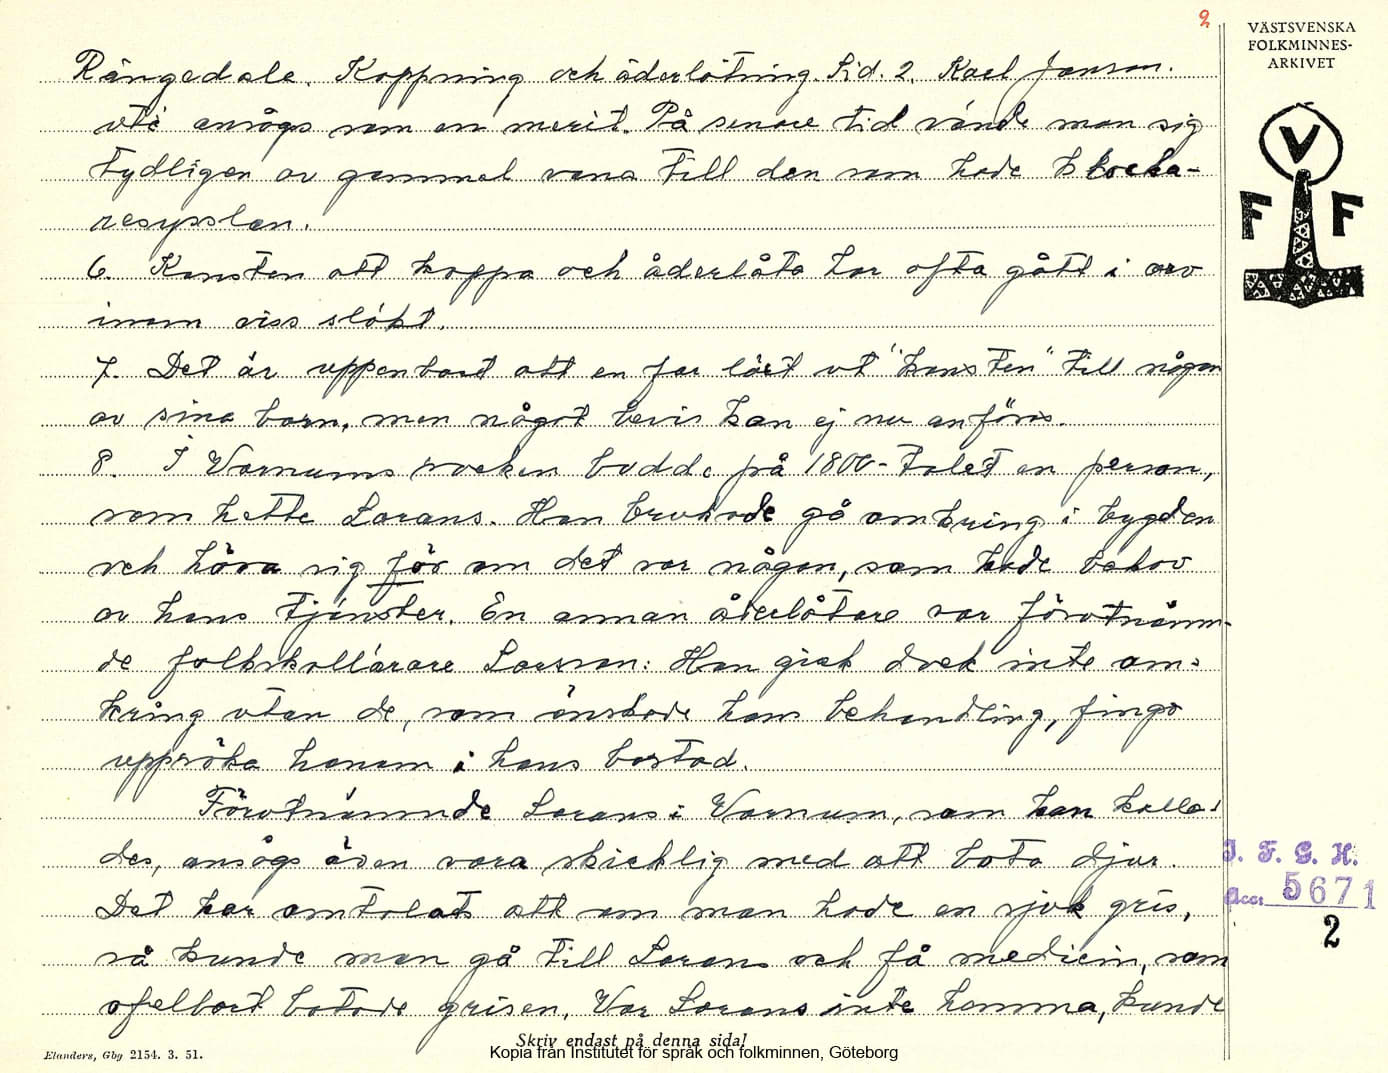 2
VÄSTSVENSKA
FOLKMINNES-
ARKIVET
V
F F
Rångedala. Koppning och åderlåtning. Sid. 2. Karl Janson.
ansågs som en merit. På senare tid vände man sig
tydligen av gammal vana till den som hade klocka-
resysslan.
6. Konsten att koppa och åderlåta har ofta gått i arv
inom viss släkt.
7. Det är uppenbart att en far lärt ut "konsten" till någon
av sina barn, men något bevis kan ej nu anföras.
8. I Varnums socken bodde på 1800-talet en person,
som hette Larans. Han brukade gå omkring i bygden
och höra sig för om det var någon, som hade behov
av hans tjänster. En annan åderlåtare var förutnämn-
de folkskollärare Larsson: Han gick dock inte om-
kring utan de, som önskade hans behandling, fingo
uppsöka honom i hans bostad.
Förutnämnde Larans i Varnum, som han kalla-
des, ansågs även vara skicklig med att bota djur.
Det har omtalats att om man hade en sjuk gris,
så kunde man gå till Larans och få medicin, som
ofelbart botade grisen. Var Larans inte hemma, kunde
I. F. G. H.
Acc. 5671
2
Skriv endast på denna sida!
Elanders, Gbg 2154. 3. 51.
Kopia från Institutet för språk och folkminnen, Göteborg